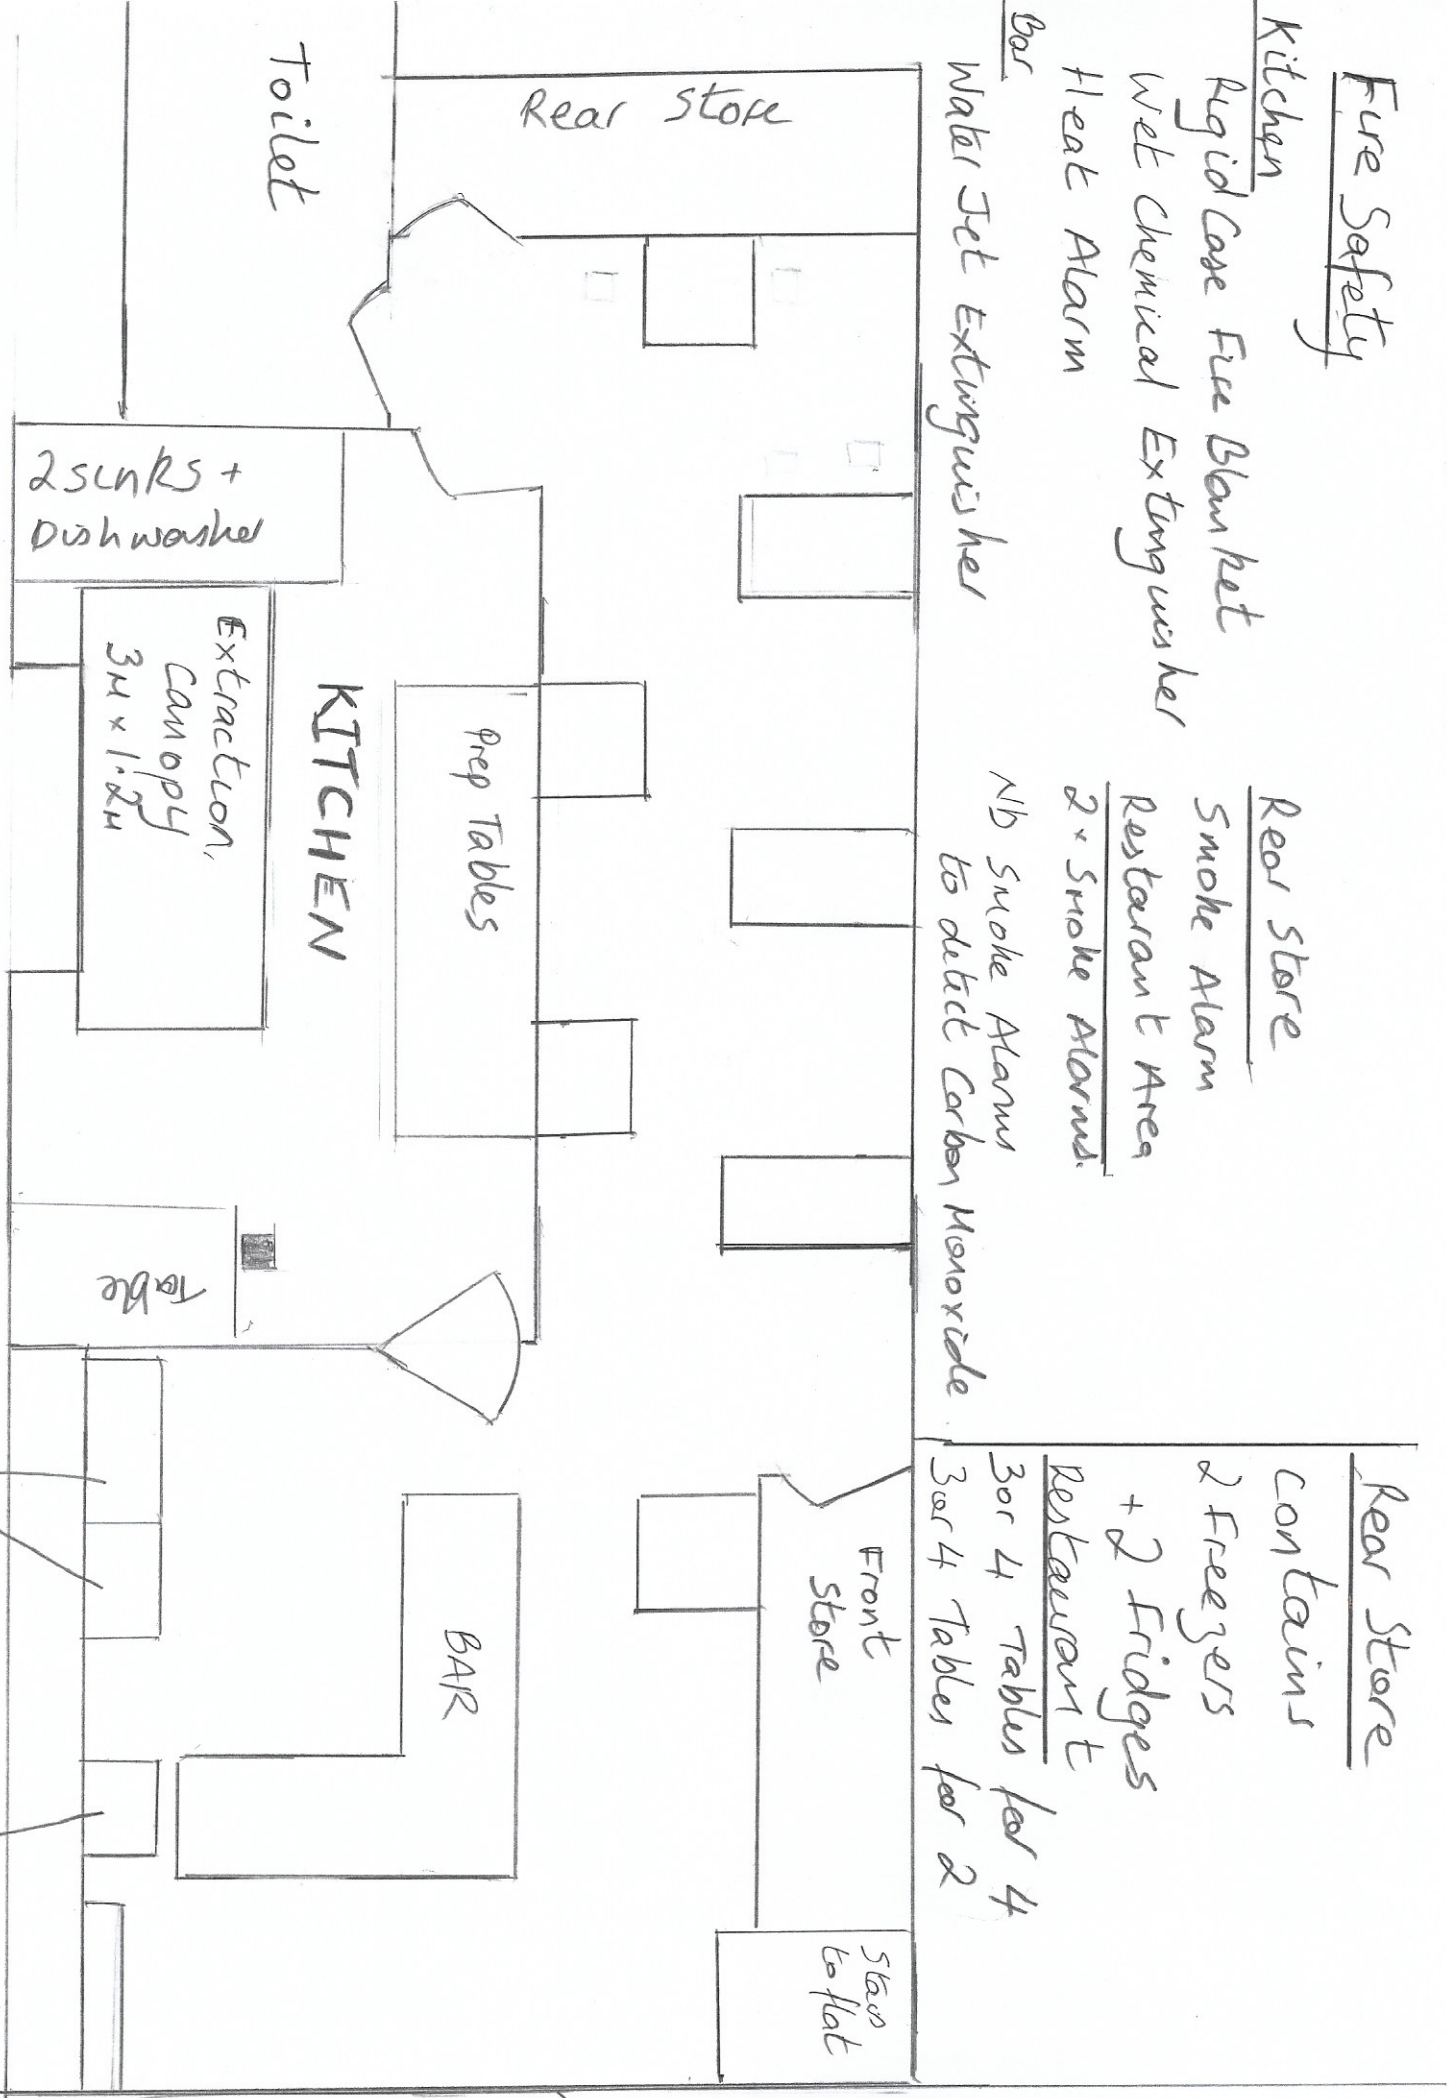 Fire Safety
Kitchen
Rigid Case Fire Blanket
Wet Chemical Extinguisher
Heat Alarm
Bar
Water Jet Extinguisher
Rear Store
Smoke Alarm
Restarant Area
2 x Smoke Alarms.
Nb Smoke Alarms
to detect Carbon Monoxide
Rear Store
Contains
2 Freezers
+ 2 Fridges
Restaurant
3 or 4 Tables for 4
3 or 4 Tables for 2
Rear Store
Toilet
2 Sinks +
Dishwasher
Extraction,
Canopy
3M x 1.2M
KITCHEN
Prep Tables
Table
BAR
Front
Store
Stairs
to flat